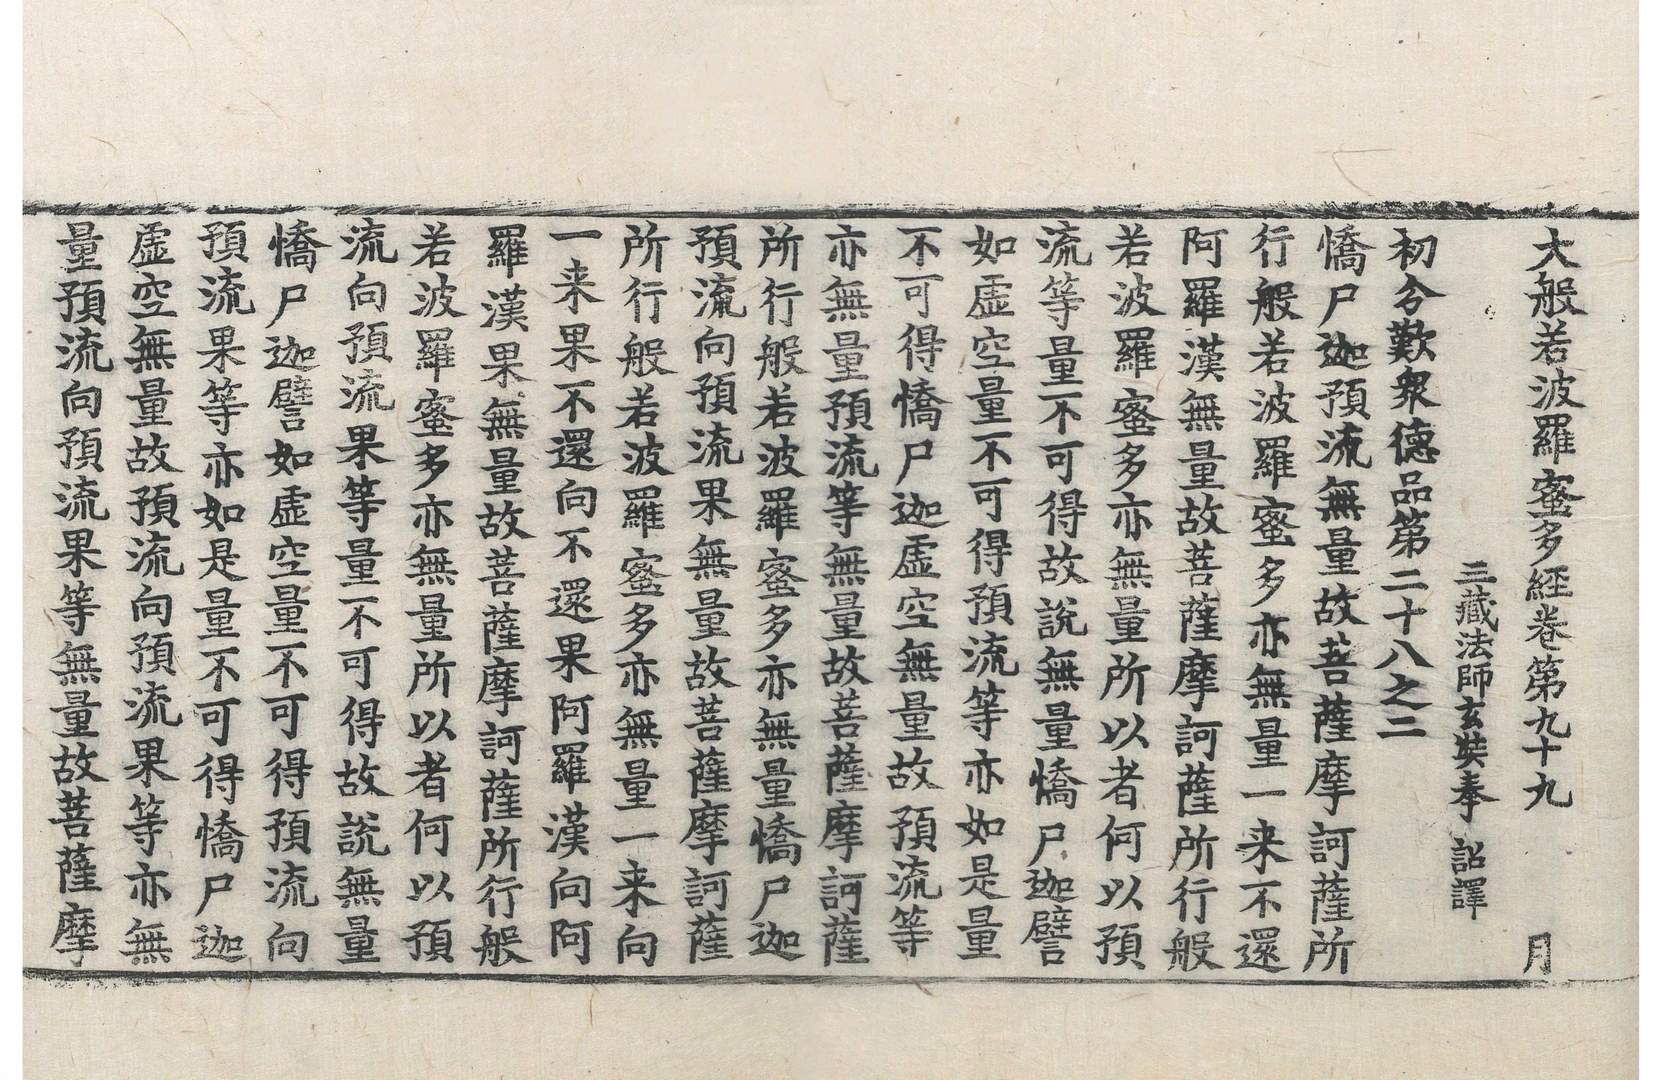 大般若波羅蜜多經卷第九十九　月
三藏法師玄奘奉　詔譯
初分歎衆德品第二十八之二
憍尸迦預流無量故菩薩摩訶薩所
行般若波羅蜜多亦無量一来不還
阿羅漢無量故菩薩摩訶薩所行般
若波羅蜜多亦無量所以者何以預
流等量不可得故說無量憍尸迦譬
如虛空量不可得預流等亦如是量
不可得憍尸迦虛空無量故預流等
亦無量預流等無量故菩薩摩訶薩
所行般若波羅蜜多亦無量憍尸迦
預流向預流果無量故菩薩摩訶薩
所行般若波羅蜜多亦無量一来向
一来果不還向不還果阿羅漢向阿
羅漢果無量故菩薩摩訶薩所行般
若波羅蜜多亦無量所以者何以預
流向預流果等量不可得故說無量
憍尸迦譬如虛空量不可得預流向
預流果等亦如是量不可得憍尸迦
虛空無量故預流向預流果等亦無
量預流向預流果等無量故菩薩摩